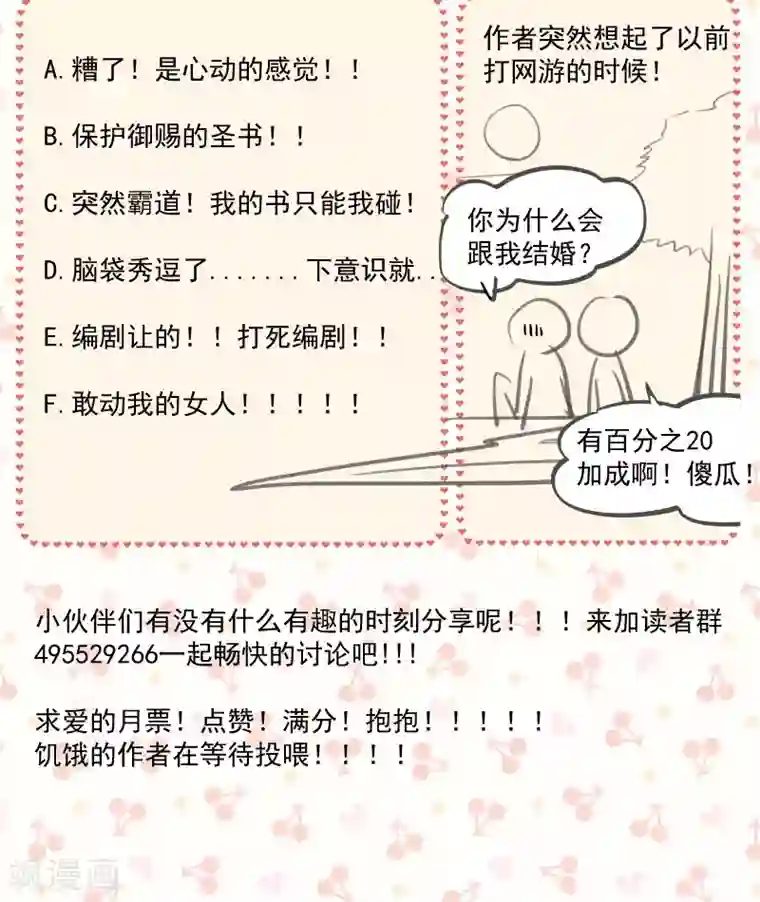 A.糟了！是心动的感觉！！
B.保护御赐的圣书！！
C.突然霸道！我的书只能我碰！
D.脑袋秀逗了.......下意识就..
E.编剧让的！！打死编剧！！
F.敢动我的女人！！！！！
作者突然想起了以前
打网游的时候！
你为什么会
跟我结婚？
有百分之20
加成啊！傻瓜！
小伙伴们有没有什么有趣的时刻分享呢！！！来加读者群
495529266一起畅快的讨论吧!!!
求爱的月票！点赞！满分！抱抱！！！！！
饥饿的作者在等待投喂！！！！
飒漫画